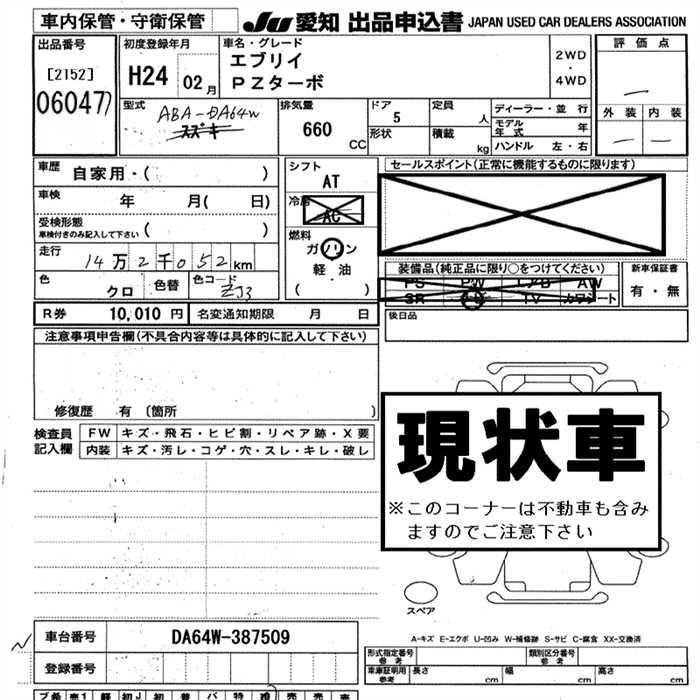 車内保管・守衛保管
JU 愛知 出品申込書 JAPAN USED CAR DEALERS ASSOCIATION
出品番号
[2152]
06047
初度登録年月
H24 02月
車名・グレード
エブリイ
PZターボ
2WD
・
4WD
評価点
外装 内装
型式
ABA-DA64W
スズキ
排気量
660 CC
ドア 5
形状
定員 人
積載 kg
ディーラー・並行
モデル年式 年
ハンドル 左・右
車歴 自家用・( )
車検 年 月( 日)
受検形態
車検付きのみ記入して下さい ( )
走行 14万2千052km
色 クロ 色替 色コード ZJ3
シフト
AT
冷房
AC
燃料
ガソリン
軽・油
( )
セールスポイント(正常に機能するものに限ります)
装備品(純正品に限り○をつけてください)
PS PW エアB AW
SR TV カワシート
新車保証書
有・無
Rケン 10,010円 名変通知期限 月 日
後日品
注意事項申告欄(不具合内容等は具体的に記入して下さい)
修復歴 有 〔箇所 〕
検査員記入欄
FW キズ・飛石・ヒビ割・リペア跡・X要
内装 キズ・汚レ・コゲ・穴・スレ・キレ・破レ
現状車
※このコーナーは不動車も含み
ますのでご注意下さい
スペア
A-キズ E-エクボ U-凹み W-補修跡 S-サビ C-腐食 XX-交換済
車台番号 DA64W-387509
登録番号
形式指定番号 参考
類別区分番号 参考
車庫証明用 参考 長さ cm 幅 cm 高さ cm